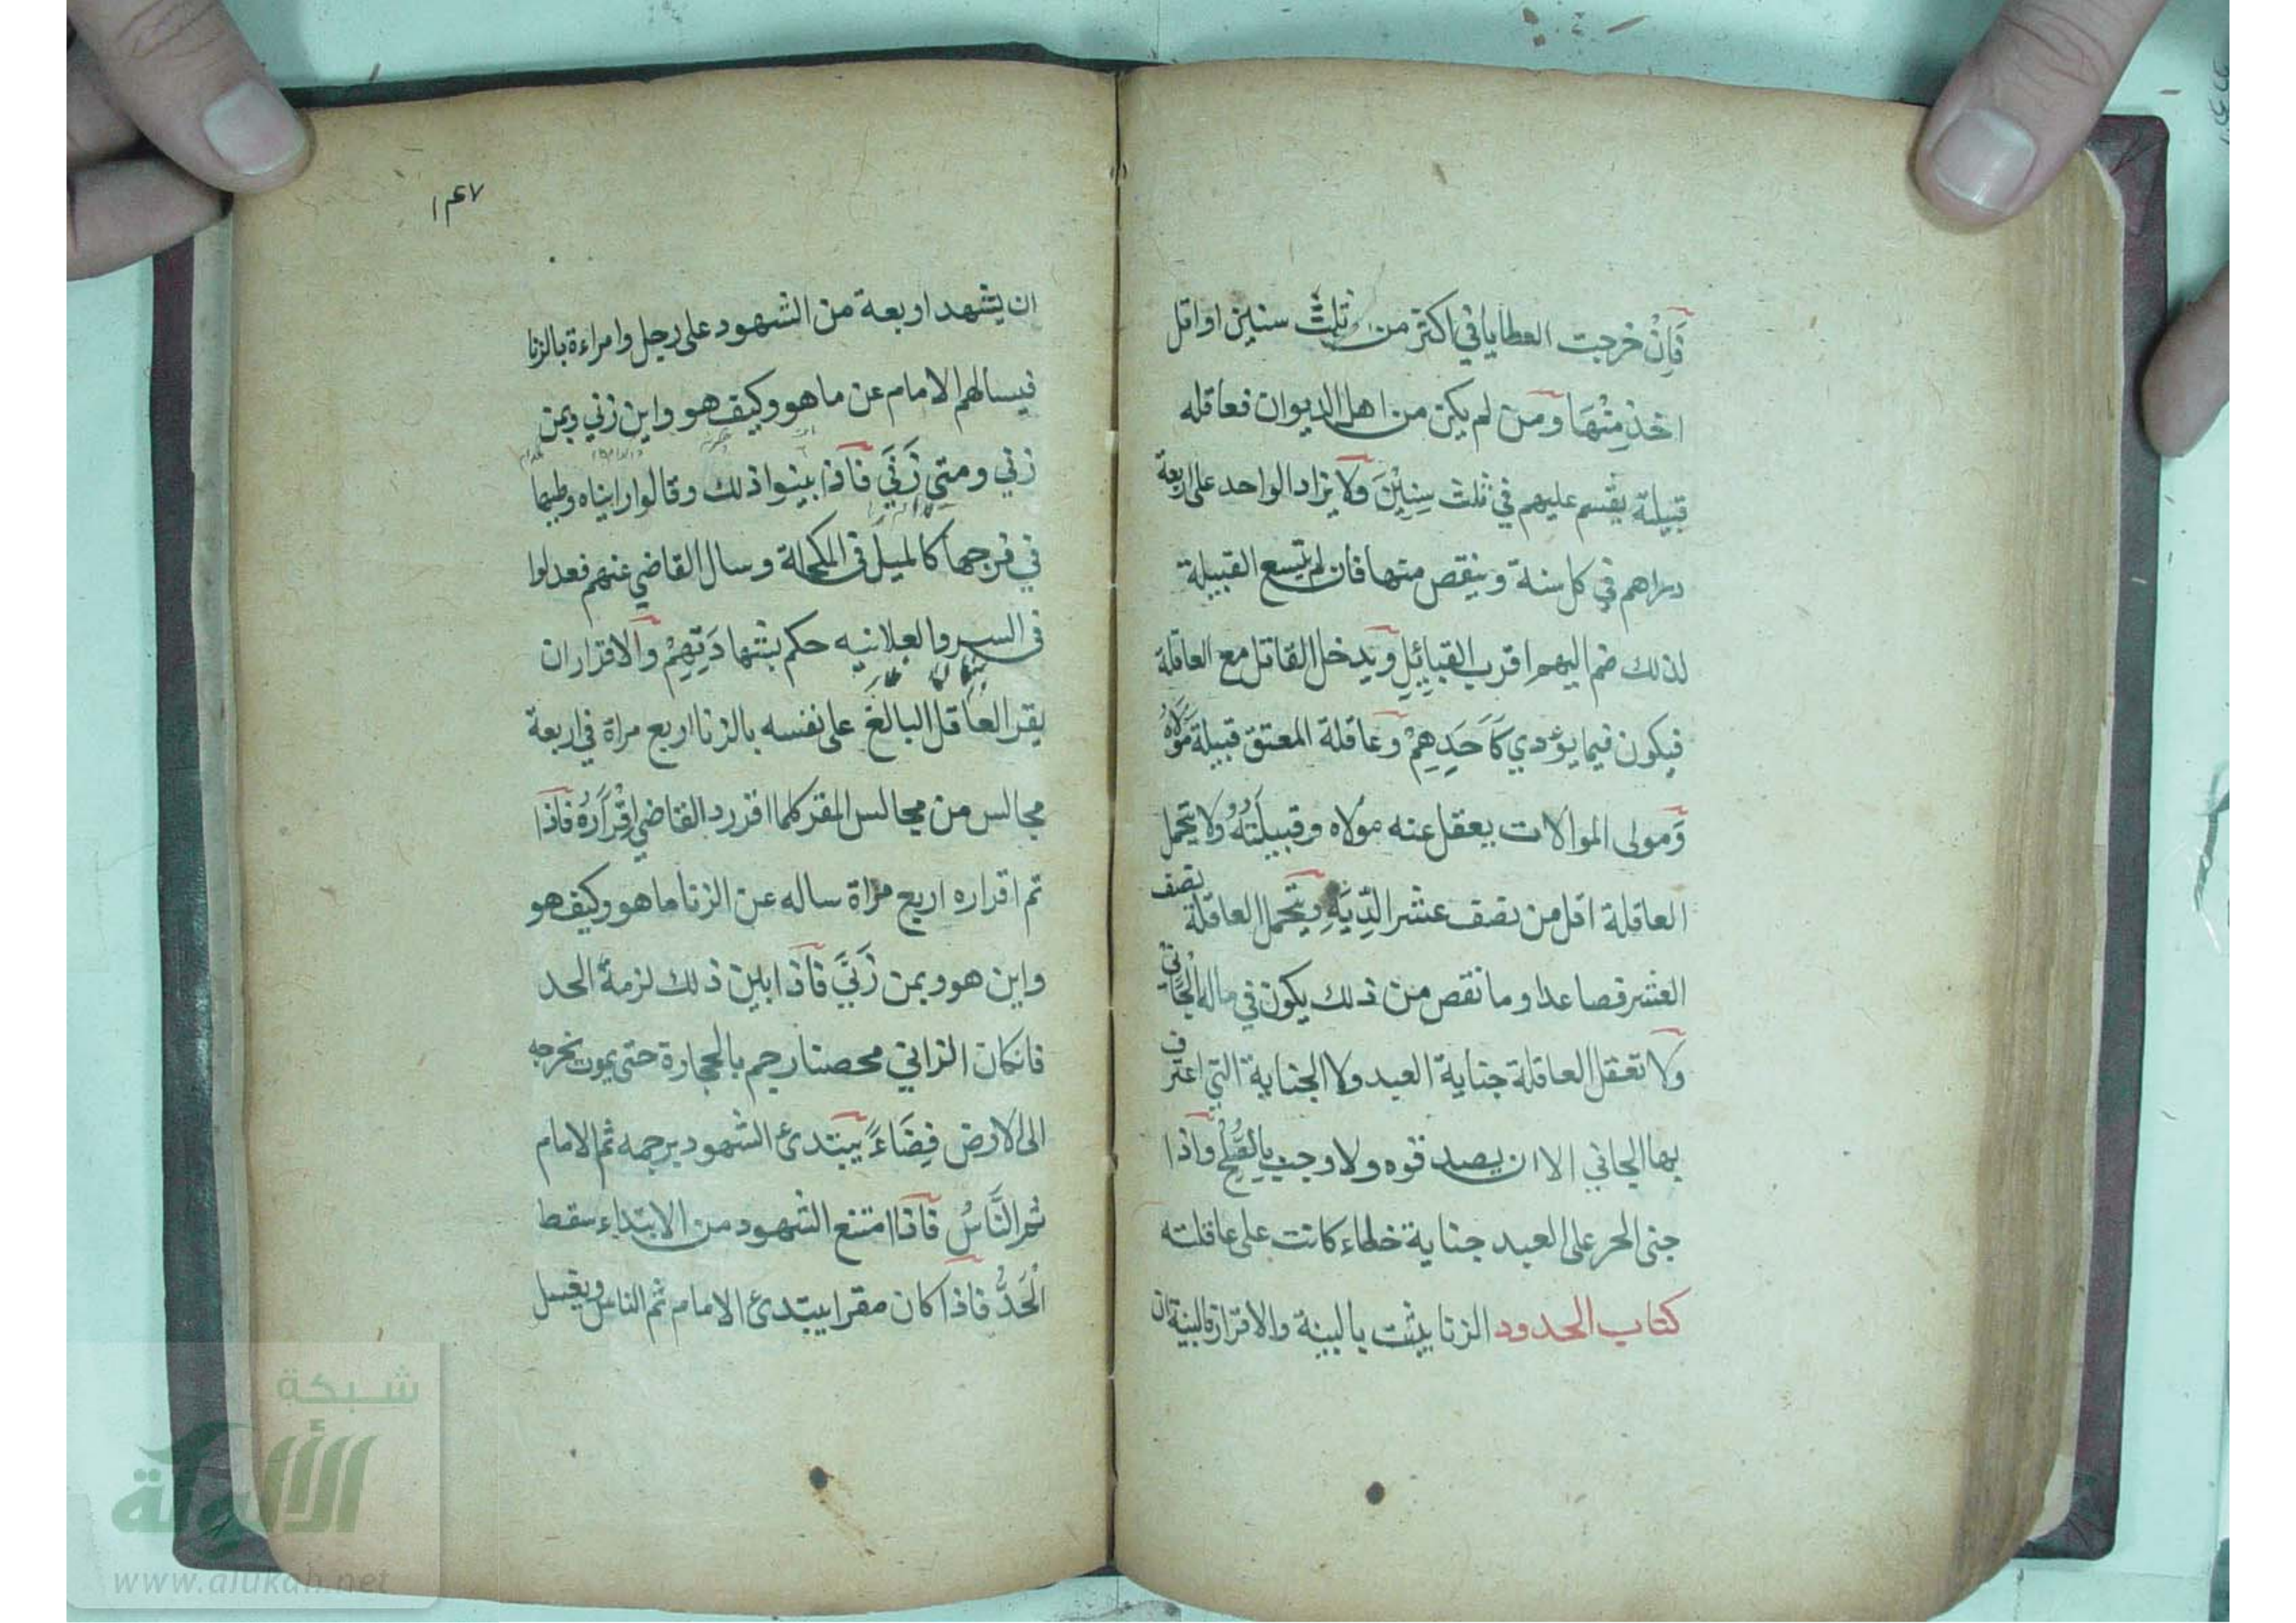 فَاِنْ خرجت العطايا في اكثر من ثلث سنين او اقل
اخذ مِنْهَا ومن لم يكن من اهل الديوان فعاقله
قبيلة يقسم عليهم في ثلث سِنِيْنَ ولا يزاد الواحد على اربعة
دراهم في كل سنة وينقص منها فان لم يتسع القبيلة
لذلك ضم اليهم اقرب القبائِلِ ويدخل القاتل مع العاقلة
فيكون فيما يؤدي كَاَحَدِهِمْ وعاقلة المعتق قبيلة مَوْلَاهُ
وَمولى الموالات يعقل عنه مولاه وقبيلَتُهُ ولا يتحمل
العاقلة اقل من نصف عشر الدِّيَةِ ويتحمل العاقلة نصف
العشر فصاعدا وما نقص من ذلك يكون في ماله الجَانِي
ولا تعقل العاقلة جناية العبد ولا الجناية التي اعترف
بها الجاني الا ان يصدقوه ولا وجبت بِالصُّلْحِ واذا
جنى الحر على العبد جناية خطاء كانت على عاقلته
كتاب الحدود الزنا يثبت بالبينة والاقرار فالبينة ان
١٤٧
ان يشهد اربعة من الشهود على رجل وامراءة بالزنا
فيسالهم الامام عن ما هو وكيف هو واين زني وبمن
زني ومتي زَنَيَ فَاذا بينوا ذلك وقالوا رايناه وطيها
في فرجها كالميل في المكحلة وسال القاضي عنهم فعدلوا
في السر والعلانيه حكم بشهادَتِهِمْ والاقرار ان
يقر العاقل البالغ على نفسه بالزنا اربع مراة في اربعة
مجالس من مجالس المقر كلما اقر رد القاضي اِقْرَارَهُ فاذا
تم اقراره اربع مراة ساله عن الزنا ما هو وكيف هو
واين هو وبمن زَنَيَ فَاذا بين ذلك لزمهُ الحد
فانكان الزاني محصنا رجم بالحجارة حتى يموت يخرجه
الى الارض فِضَاءً يبتدئ الشهود برجمه ثم الامام
ثم النَّاسُ فَاذا امتنع الشهود من الابتداء سقط
الْحَدُّ فاذا كان مقرا يبتدئ الامام ثم الناس ويغسل
شبكة
الألوكة
www.alukah.net